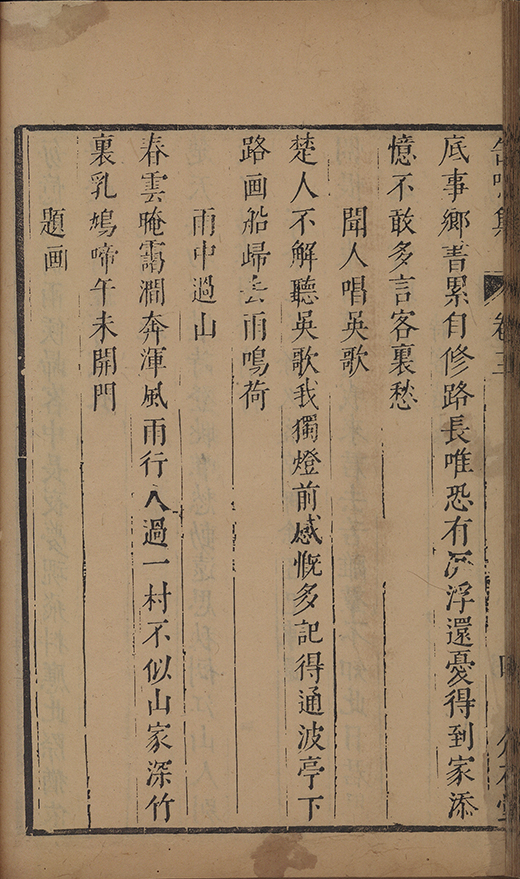 底事鄉書累自修路長唯恐有沉浮還憂得到家添
憶不敢多言客裏愁
聞人唱吳歌
楚人不解聽吳歌我獨燈前感慨多記得通波亭下
路画船歸去雨鳴荷
雨中過山
春雲晻靄澗奔渾風雨行人過一村不似山家深竹
裏乳鳩啼午未開門
題画